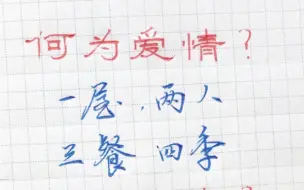 何为爱情?
一屋,两人
三餐 四季